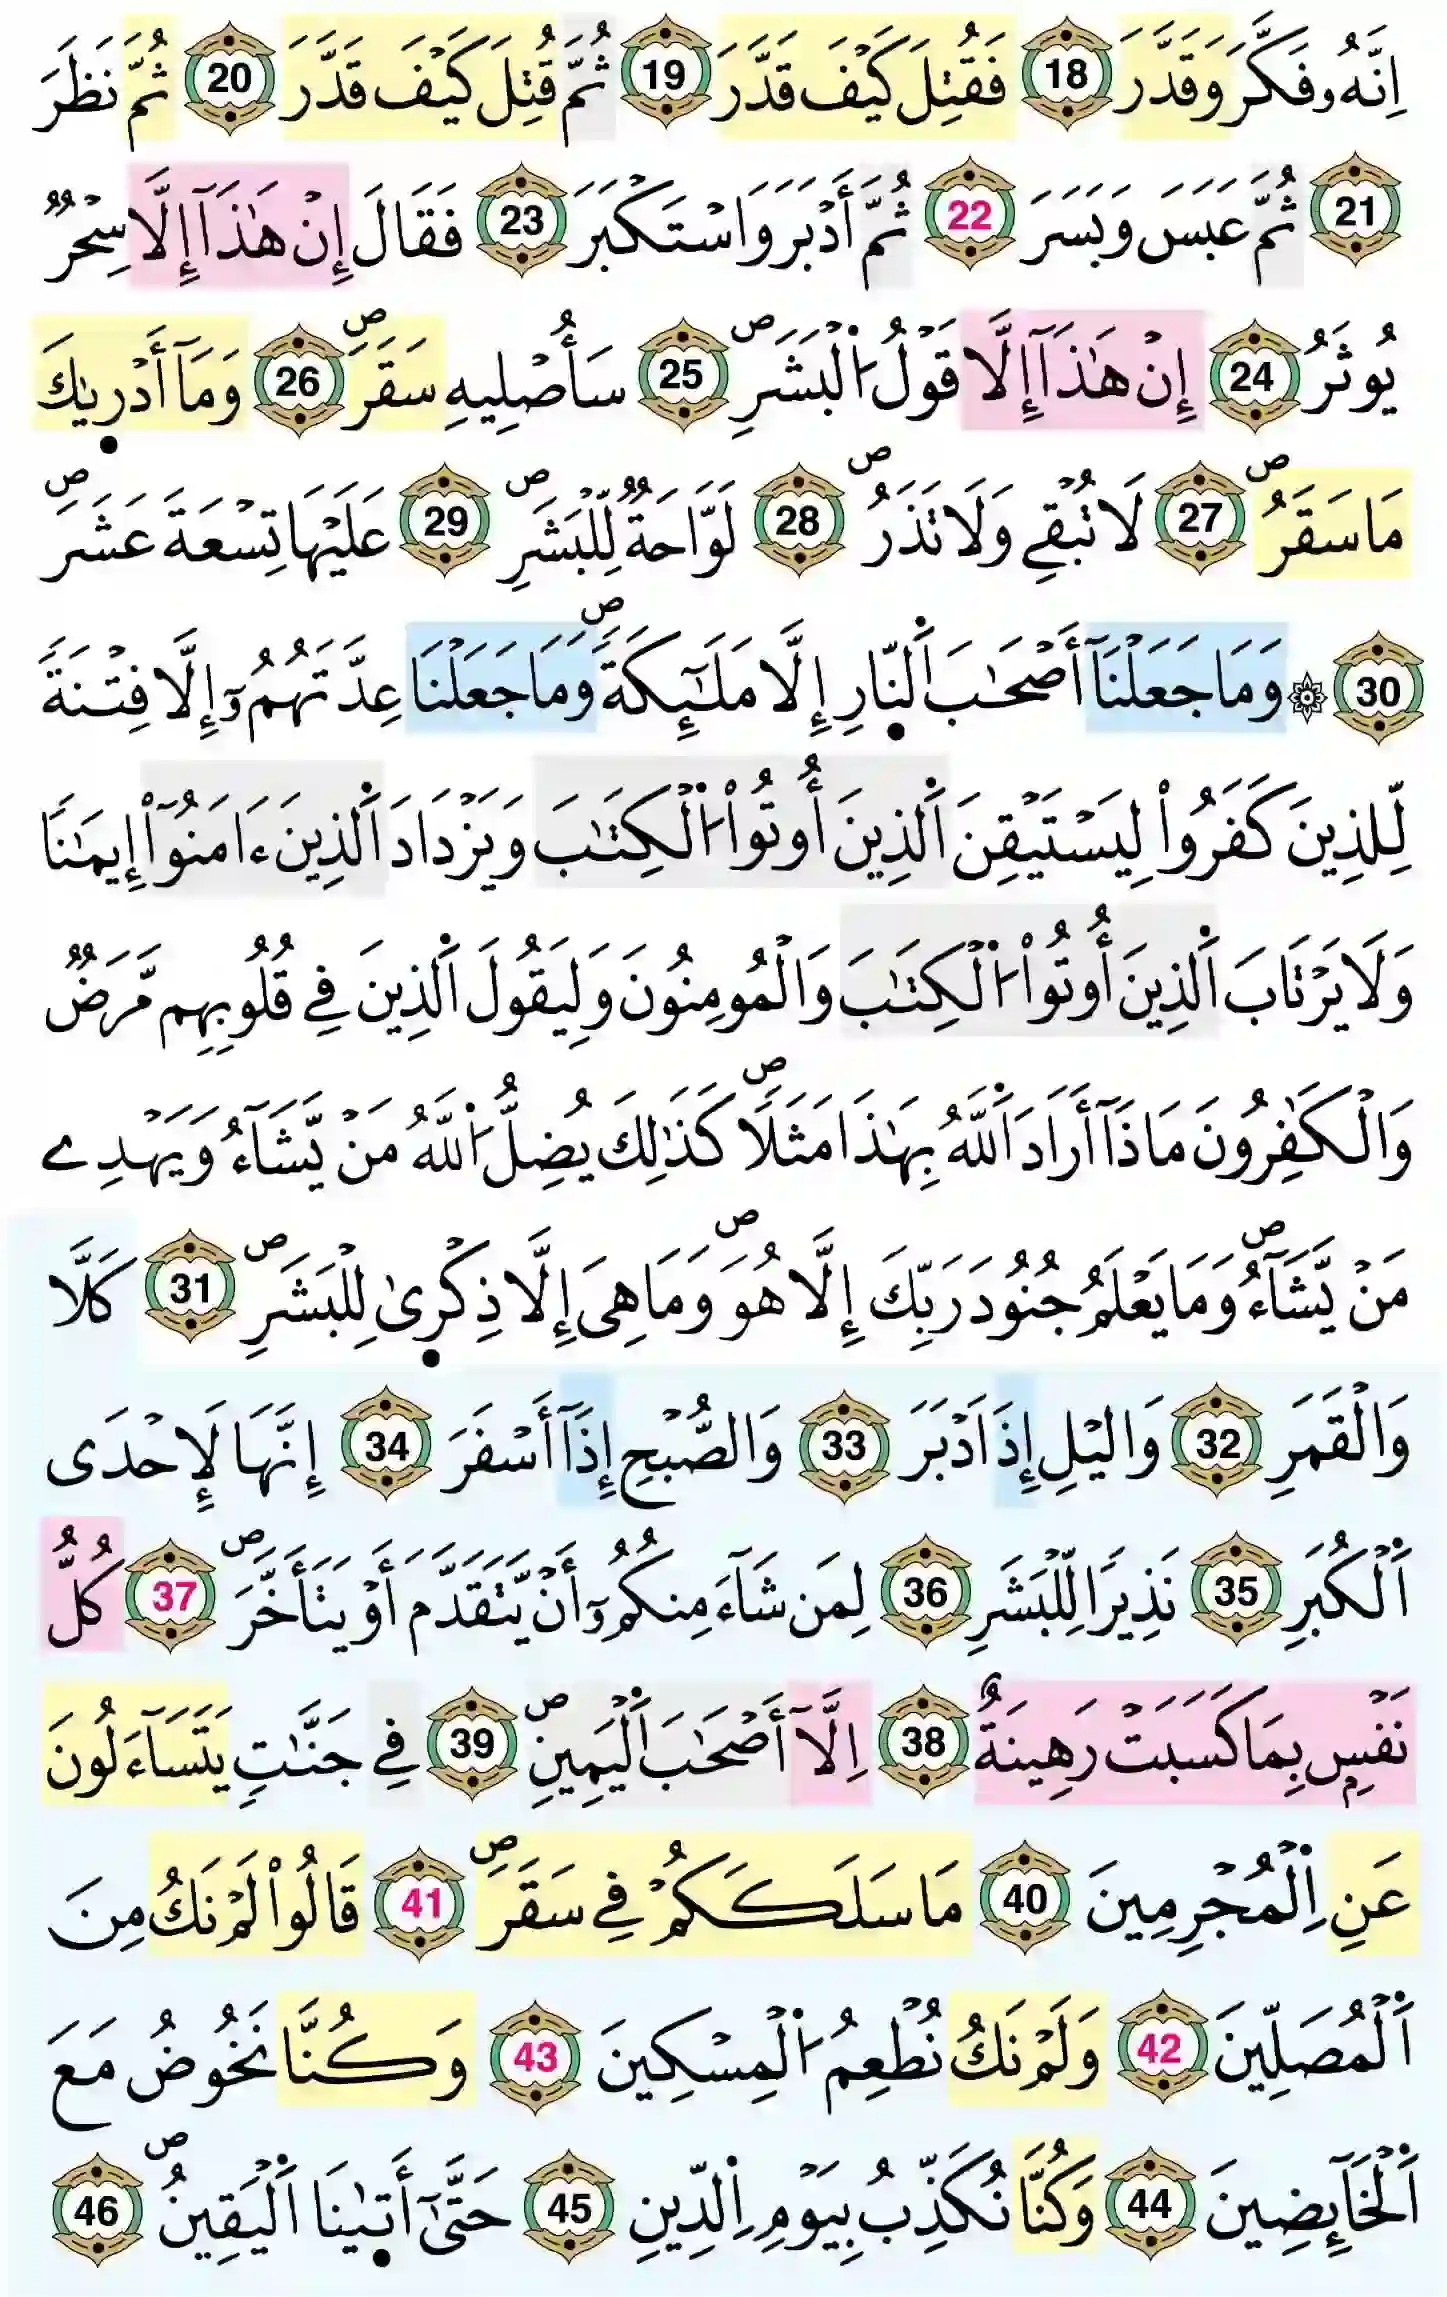 اِنَّهُۥ فَكَّرَ وَقَدَّرَ 18 فَقُتِلَ كَيْفَ قَدَّرَ 19 ثُمَّ قُتِلَ كَيْفَ قَدَّرَ 20 ثُمَّ نَظَرَ
21 ثُمَّ عَبَسَ وَبَسَرَ 22 ثُمَّ أَدْبَرَ وَاسْتَكْبَرَ 23 فَقَالَ إِنْ هَٰذَآ إِلَّا سِحْرٌ
يُوثَرُ 24 إِنْ هَٰذَآ إِلَّا قَوْلُ اُ۬لْبَشَرِۖ 25 سَأُصْلِيهِ سَقَرَۖ 26 وَمَآ أَدْر۪يٰكَ
مَا سَقَرُۖ 27 لَا تُبْقِے وَلَا تَذَرُۖ 28 لَوَّاحَةٞ لِّلْبَشَرِۖ 29 عَلَيْهَا تِسْعَةَ عَشَرَۖ
30 ۞ وَمَا جَعَلْنَآ أَصْحَٰبَ اَ۬لنّ۪ارِ إِلَّا مَلَٰٓئِكَةٗۖ وَمَا جَعَلْنَا عِدَّتَهُمُۥٓ إِلَّا فِتْنَةٗ
لِّلذِينَ كَفَرُواْ لِيَسْتَيْقِنَ اَ۬لذِينَ أُوتُواْ اُ۬لْكِتَٰبَ وَيَزْدَادَ اَ۬لذِينَ ءَامَنُوٓاْ إِيمَٰنٗا
وَلَا يَرْتَابَ اَ۬لذِينَ أُوتُواْ اُ۬لْكِتَٰبَ وَالْمُومِنُونَ وَلِيَقُولَ اَ۬لذِينَ فِے قُلُوبِهِم مَّرَضٞ
وَالْكَٰفِرُونَ مَاذَآ أَرَادَ اَ۬للَّهُ بِهَٰذَا مَثَلٗاۖ كَذَٰلِكَ يُضِلُّ اُ۬للَّهُ مَنْ يَّشَآءُ وَيَهْدِے
مَنْ يَّشَآءُۖ وَمَا يَعْلَمُ جُنُودَ رَبِّكَ إِلَّا هُوَۖ وَمَا هِيَ إِلَّا ذِكْر۪ىٰ لِلْبَشَرِۖ 31 كَلَّا
وَالْقَمَرِ 32 وَاليْلِ إِذَ اَدْبَرَ 33 وَالصُّبْحِ إِذَآ أَسْفَرَ 34 إِنَّهَا لَإِحْدَى
اَ۬لْكُبَرِ 35 نَذِيرٗا لِّلْبَشَرِ 36 لِمَن شَآءَ مِنكُمُۥٓ أَنْ يَّتَقَدَّمَ أَوْ يَتَأَخَّرَۖ 37 كُلُّ
نَفْسِۢ بِمَا كَسَبَتْ رَهِينَةٌ 38 اِلَّآ أَصْحَٰبَ اَ۬لْيَمِينِۖ 39 فِے جَنَّٰتٖ يَتَسَآءَلُونَ
عَنِ اِ۬لْمُجْرِمِينَ 40 مَا سَلَكَكُمْ فِے سَقَرَۖ 41 قَالُواْ لَمْ نَكُ مِنَ
اَ۬لْمُصَلِّينَ 42 وَلَمْ نَكُ نُطْعِمُ اُ۬لْمِسْكِينَ 43 وَكُنَّا نَخُوضُ مَعَ
اَ۬لْخَآئِضِينَ 44 وَكُنَّا نُكَذِّبُ بِيَوْمِ اِ۬لدِّينِ 45 حَتَّىٰٓ أَت۪يٰنَا اَ۬لْيَقِينُۖ 46